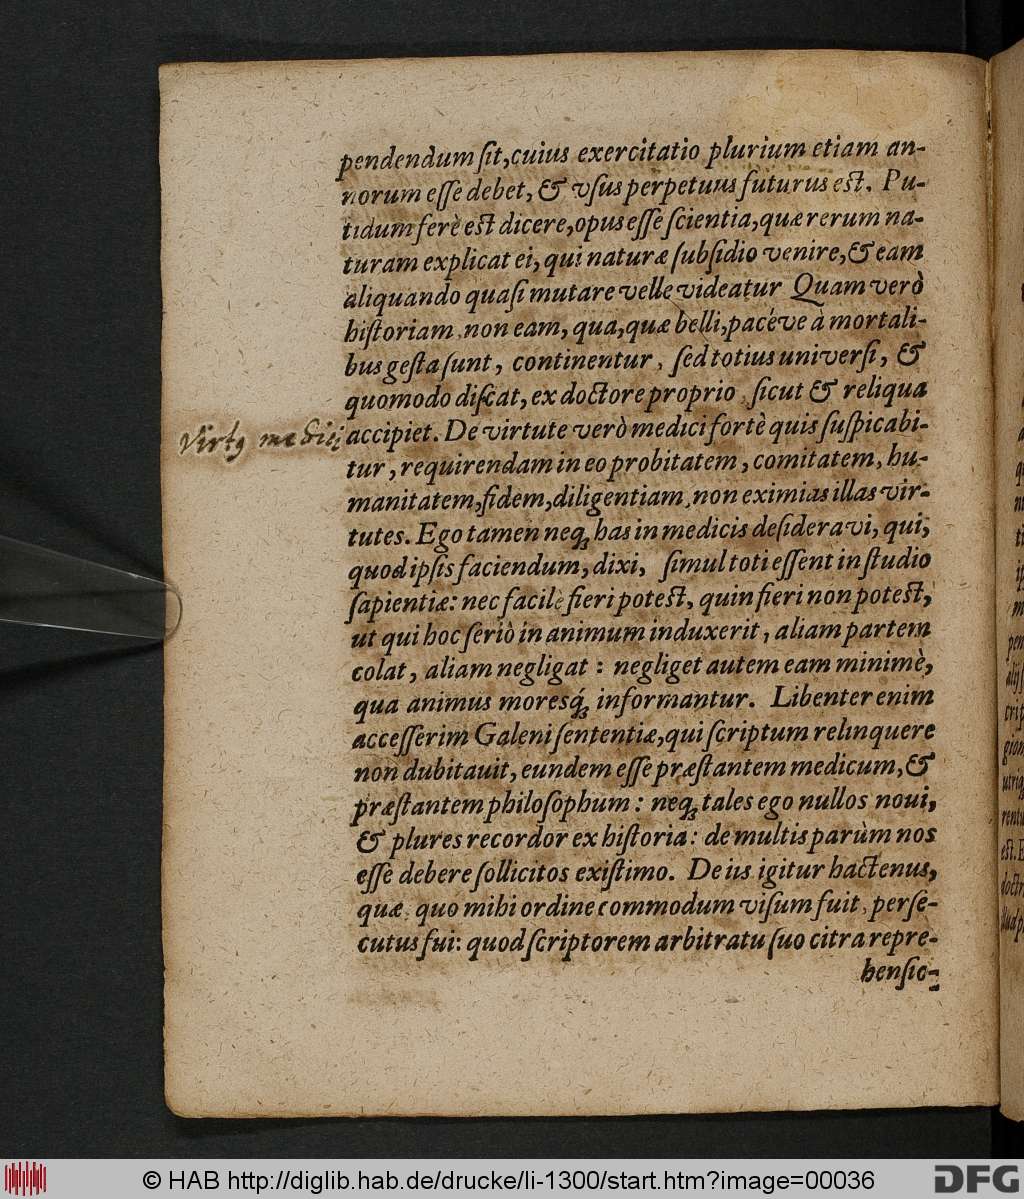 pendendum ſit, cuius exercitatio plurium etiam an-
norum eſſe debet, & vſus perpetuus futurus est. Pu-
tidum ferè est dicere, opus eſſe ſcientia, quæ rerum na-
turam explicat ei, qui naturæ ſubſidio venire, & eam
aliquando quaſi mutare velle videatur Quam verò
hiſtoriam, non eam, qua, quæ belli, pacéve à mortali-
bus geſta ſunt, continentur, ſed totius univerſi, &
quomodo diſcat, ex doctore proprio, ſicut & reliqua
Virtꝰ medici
accipiet. De virtute verò medici fortè quis ſuſpicabi-
tur, requirendam in eo probitatem, comitatem, hu-
manitatem, fidem, diligentiam, non eximias illas vir-
tutes. Ego tamen neqꝫ has in medicis deſideravi, qui,
quod ipſis faciendum, dixi, ſimul toti eſſent in ſtudio
ſapientiæ: nec facilè fieri potest, quin fieri non potest,
ut qui hoc ſeriò in animum induxerit, aliam partem
colat, aliam negligat: negliget autem eam minimè,
qua animus moresq́ꝫ informantur. Libenter enim
acceſſerim Galeni ſententiæ, qui ſcriptum relinquere
non dubitauit, eundem eſſe præſtantem medicum, &
præſtantem philoſophum: neqꝫ tales ego nullos noui,
& plures recordor ex hiſtoria: de multis parùm nos
eſſe debere ſollicitos exiſtimo. De iis igitur hactenus,
quæ, quo mihi ordine commodum viſum fuit, perſe-
cutus fui: quod ſcriptorem arbitratu ſuo citra repre-
henſio-
© HAB http://diglib.hab.de/drucke/li-1300/start.htm?image=00036
DFG